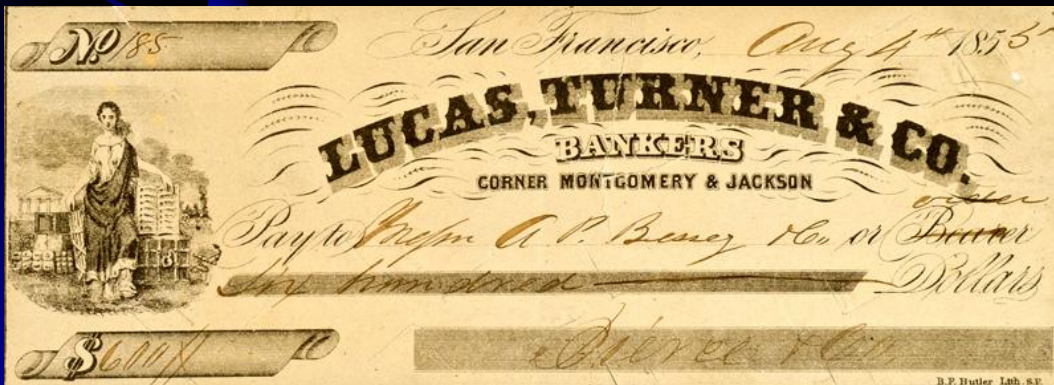 No 185
San Francisco, Aug 4th 1855
LUCAS, TURNER & CO.
BANKERS
CORNER MONTGOMERY & JACKSON
order
Pay to Messrs A P. Bessey & Co or Bearer
Six hundred Dollars
$600
Pierce & Co
B.F. Butler Lith. S.F.